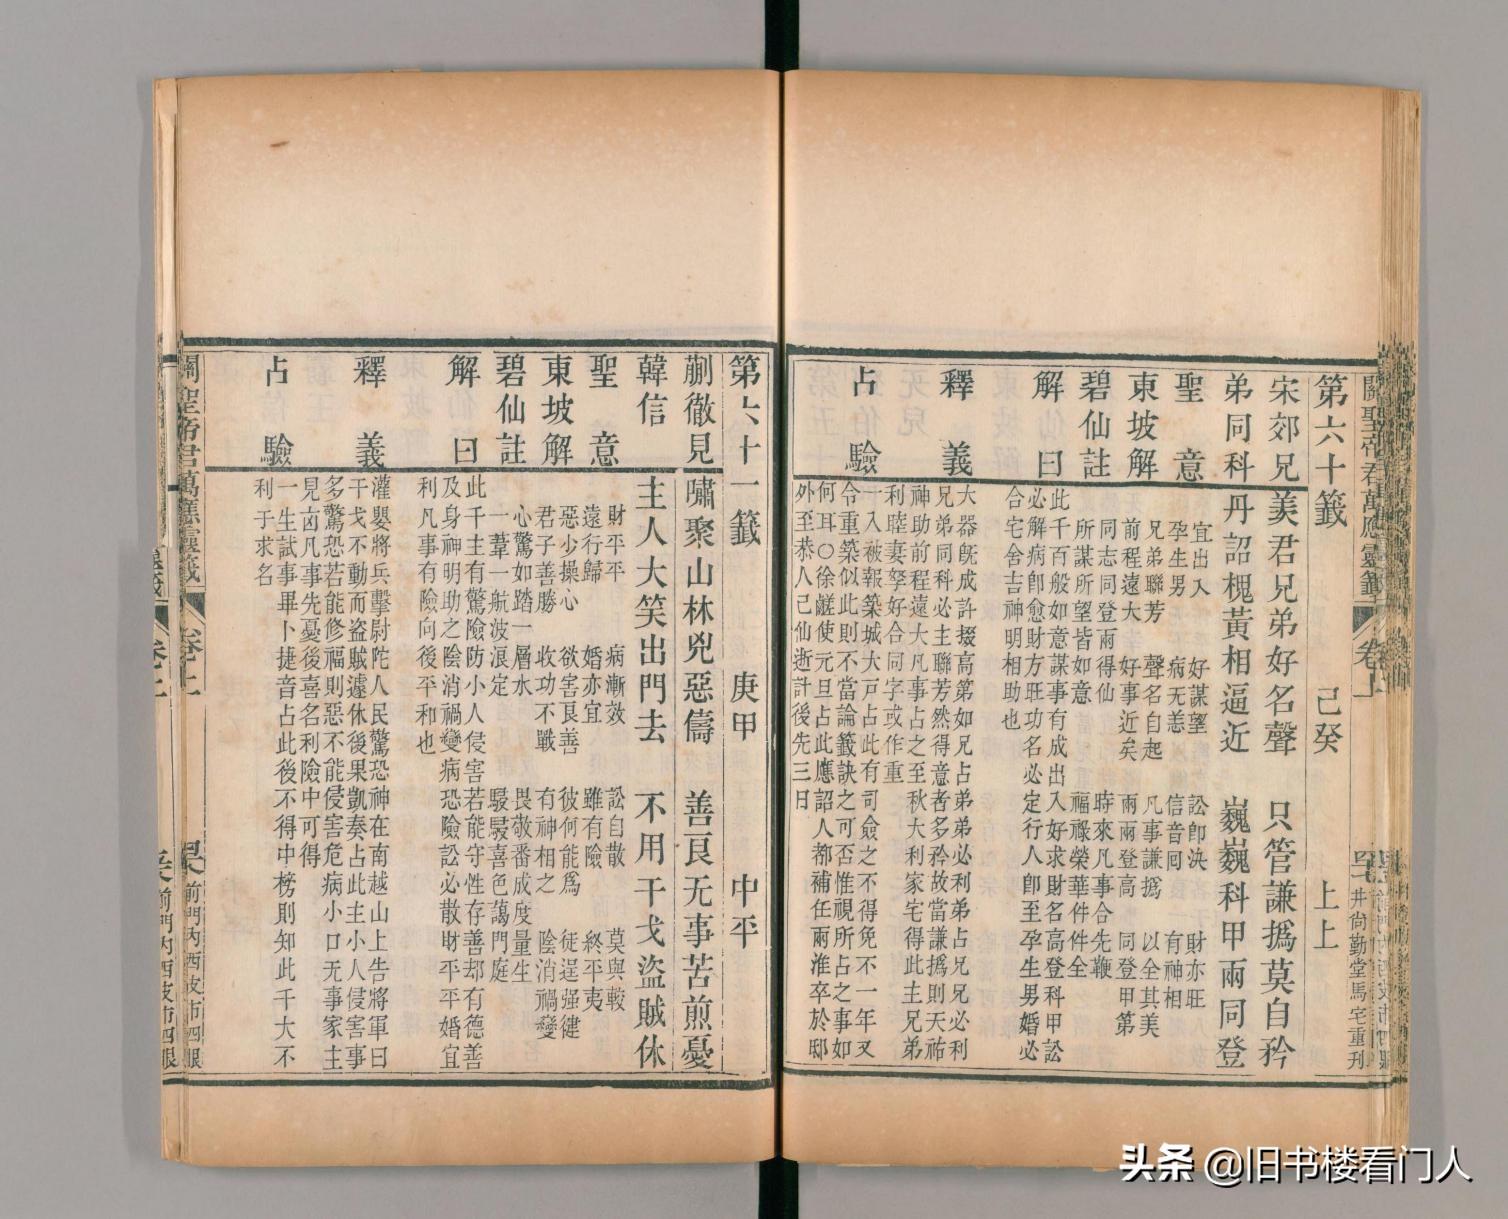 關聖帝君萬應靈籤
卷上
井尚勤堂馬宅重刊
第六十籤 己癸 上上
宋郊兄 羙君兄弟好名聲 只管謙撝莫自矜
弟同科 丹詔槐黃相逼近 巍巍科甲兩同登
聖意 宜出入 好謀望 訟卽決 財亦旺
孕生男 病无恙 信音囘 有神相
東坡解 兄弟聯芳 聲名自起 凡事謙撝 以全其美
前程遠大 好事近矣 兩兩登高 同登甲第
碧仙註 同志同登兩得仙 時來凡事合先鞭
所謀所望皆如意 福祿榮華件件全
解曰 此千百般如意謀事有成出入好求財名高登科甲訟
必解病卽愈財方旺功名必定行人卽至孕生男婚必
合宅舍吉神明相助也
釋義 大器旣成許掇高第如兄占弟弟必利弟占兄兄必利
兄弟同科必主聯芳然得意者多矜故當謙撝則天祐
神助前程遠大凡事占之至秋大利家宅得此主兄弟
利睦妻孥好合同字或作重
占驗 一人被報築城大戸占此有司僉之不得免不一年又
令重築似此則不當論籤訣之可否惟視所占之事如
何耳○徐鹺使元旦占此應詔人都補任兩淮卒於邸
外至恭人己仙逝計後先三日
第六十一籤 庚甲 中平
蒯徹見 嘯聚山林兇惡儔 善良无事苦煎憂
韓信 主人大笑出門去 不用干戈盜賊休
聖意 財平平 病漸效 訟自散 莫與較
遠行歸 婚亦宜 雖有險 終平夷
東坡解 惡少操心 欲害良善 彼何能爲 徒逞强健
君子善勝 收功不戰 有神相之 陰消禍變
碧仙註 心驚如踏一層水 畏敬番成度量生
一葦一航波浪定 駸駸喜色藹門庭
解曰 此千主有驚險防小人侵害若能守性存善却有德善
及身神明助之陰消禍變病恐險訟必散財平平婚宜
利凡事有險向後平和也
釋義 灌嬰將兵擊尉陀人民驚恐神在南越山上告將軍曰
干戈不動而盜賊遽休後果凱奏占此主小人侵害事
多驚恐若能修福則惡不能侵害危病小口无事家主
見凶凡事先憂後喜名利險中可得
占驗 一生試事畢卜捷音占此後不得中榜則知此千大不
利于求名
關聖帝君萬應靈籤
卷上
前門內西皮市四眼
头条 @旧书楼看门人